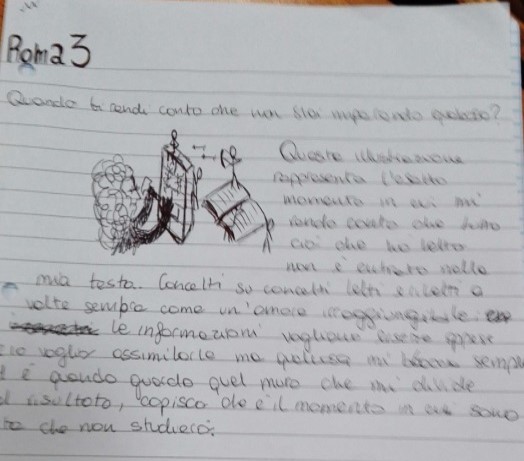 Roma 3
Quando ti rendi conto che non stai imparando qualcosa?
Questa illustrazione
rappresenta l'esatto
momento in cui mi
rendo conto che tutto
ciò che ho letto
non è entrato nella
mia testa. Concetti su concetti letti e riletti a
volte sembra come un'amore irraggiungibile
le informazioni vogliono essere apprese
io voglio assimilarle ma qualcosa mi blocca sempre
è quando guardo quel muro che mi divide
risultato, capisco che è il momento in cui sono
che non studierò.